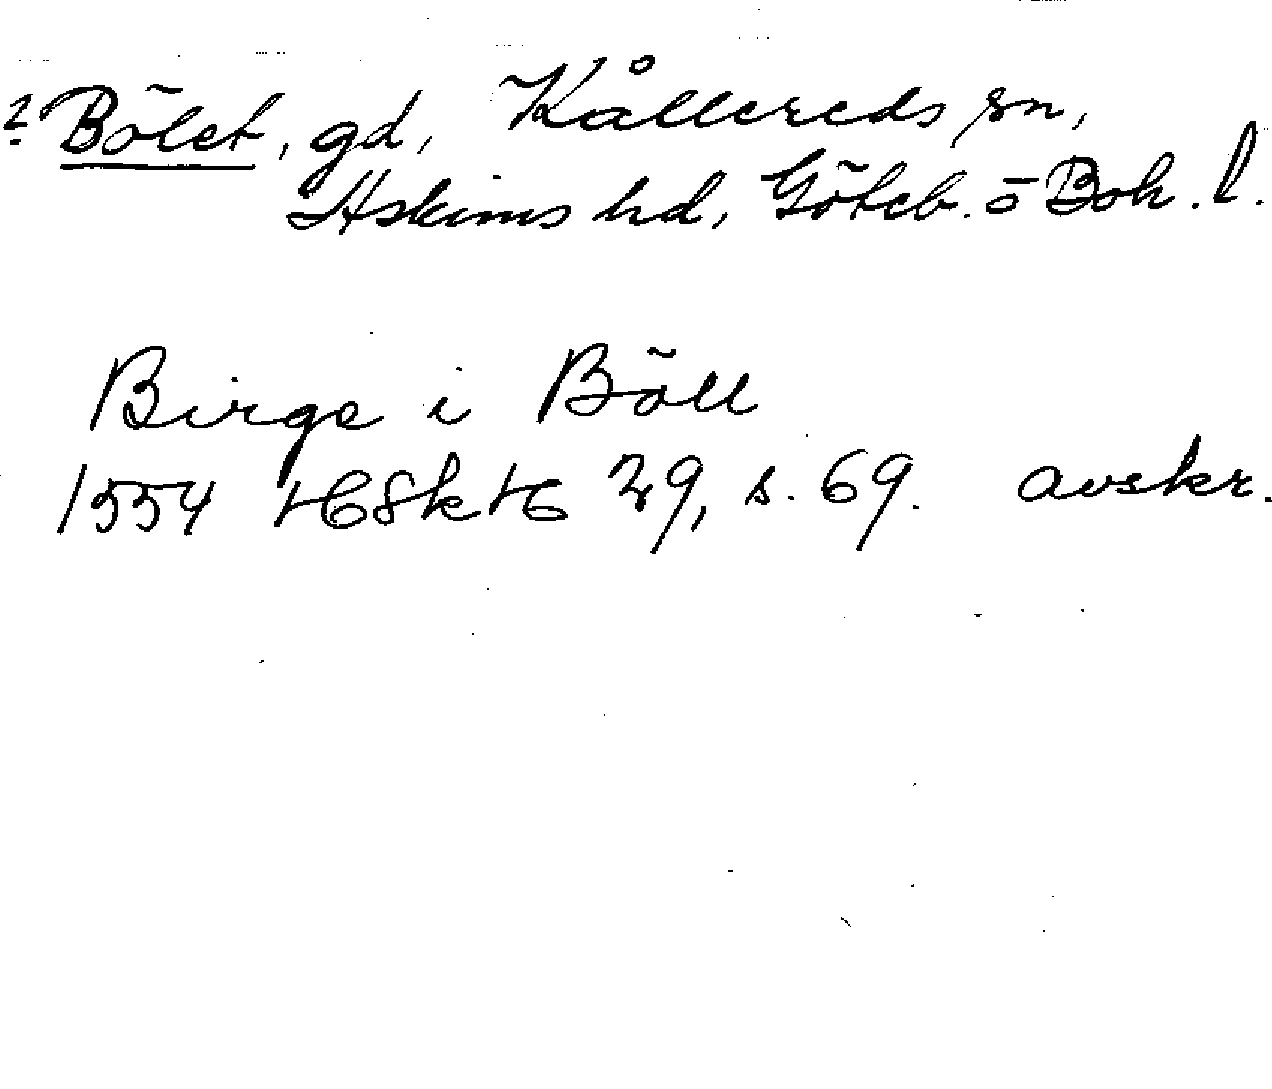 ? Bölet, gd, Kållereds sn,
Askims hd, Göteb. o Boh. l.
Birge i Böll
1554 HSkH 29, s. 69. avskr.